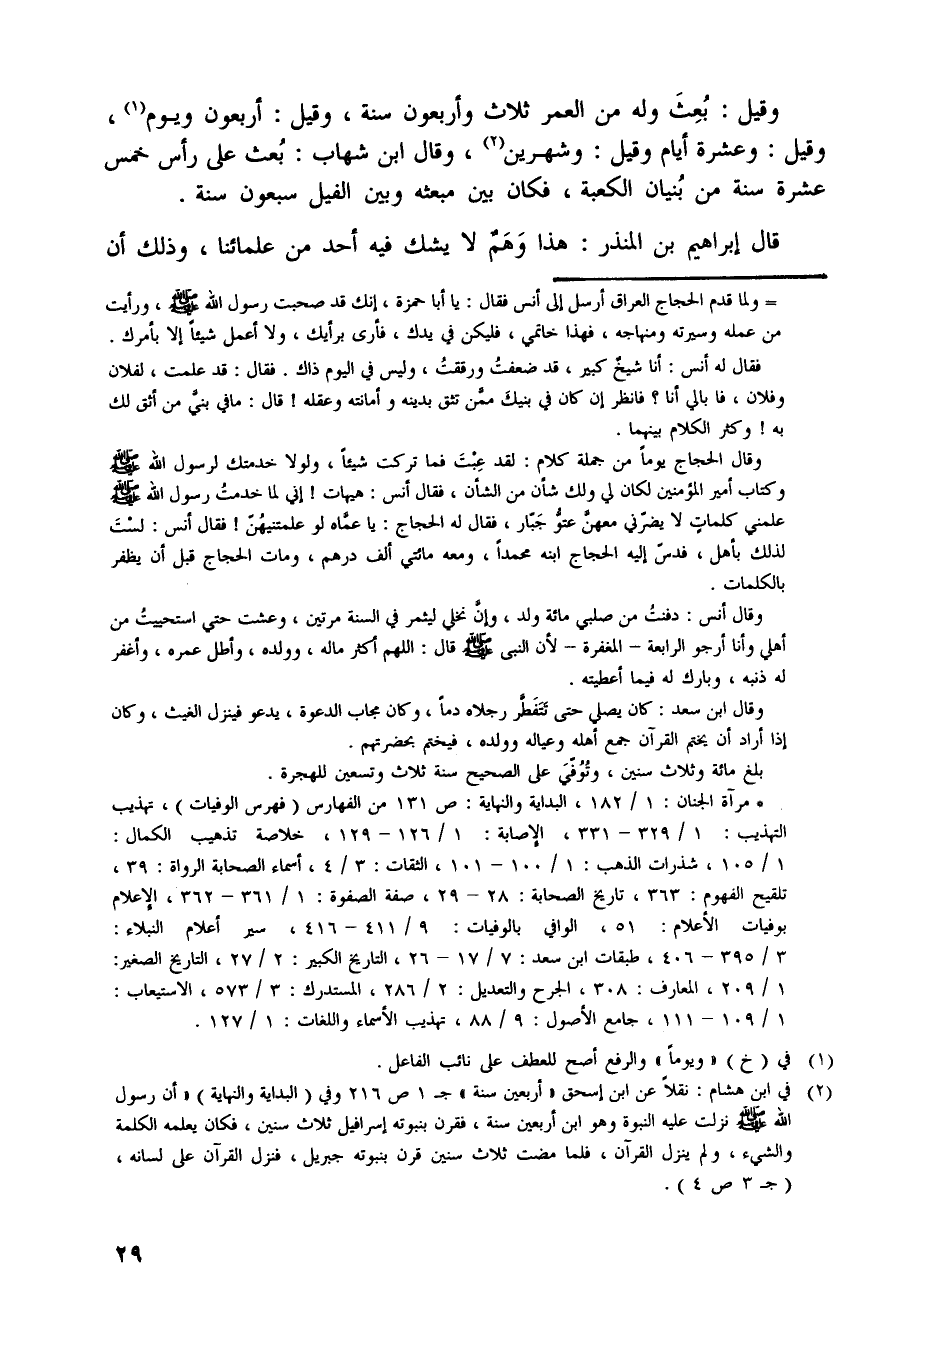 وقيل : بُعِثَ وله من العمر ثلاث وأربعون سنة ، وقيل : أربعون ويـوم(١) ،
وقيل : وعشرة أيام وقيل : وشهـرين(٢) ، وقال ابن شهاب : بُعث على رأس خمس
عشرة سنة من بُنيان الكعبة ، فكان بين مبعثه وبين الفيل سبعون سنة .
قال إبراهيم بن المنذر : هذا وَهَمٌ لا يشك فيه أحد من علمائنا ، وذلك أن
= ولما قدم الحجاج العراق أرسل إلى أنس فقال : يا أبا حمزة ، إنك قد صحبت رسول الله ﷺ ، ورأيت
من عمله وسيرته ومنهاجه ، فهذا خاتمي ، فليكن في يدك ، فأرى برأيك ، ولا أعمل شيئاً إلا بأمرك .
فقال له أنس : أنا شيخٌ كبير ، قد ضعفتُ ورققتُ ، وليس في اليوم ذاك . فقال : قد علمت ، لفلان
وفلان ، فا بالي أنا ؟ فانظر إن كان في بنيكَ ممَّن تثق بدينه و أمانته وعقله ! قال : مافي بنيَّ من أثق لك
به ! وكثر الكلام بينهما .
وقال الحجاج يوماً من جملة كلام : لقد عِبْتَ فما تركت شيئاً ، ولولا خدمتك لرسول الله ﷺ
وكتاب أمير المؤمنين لكان لي ولك شأن من الشأن ، فقال أنس : هيهات ! إني لما خدمتُ رسول الله ﷺ
علمني كلماتٍ لا يضرّني معهنَّ عتوُّ جَبّار ، فقال له الحجاج : يا عمَّاه لو علمتنيهُنّ ! فقال أنس : لسْتَ
لذلك بأهل ، فدسّ إليه الحجاج ابنه محمداً ، ومعه مائتي ألف درهم ، ومات الحجاج قبل أن يظفر
بالكلمات .
وقال أنس : دفنتُ من صلبي مائة ولد ، وإنَّ نخلي ليثمر في السنة مرتين ، وعشت حتي استحييتُ من
أهلي وأنا أرجو الرابعة – المغفرة – لأن النبى ﷺ قال : اللهم أكثر ماله ، وولده ، وأطل عمره ، وأغفر
له ذنبه ، وبارك له فيما أعطيته .
وقال ابن سعد : كان يصلي حتى تَتَفَطَّر رجلاه دماً ، وكان مجاب الدعوة ، يدعو فينزل الغيث ، وكان
إذا أراد أن يختم القرآن جمع أهله وعياله وولده ، فيختم بحضرتهم .
بلغ مائة وثلاث سنين ، وتُوُفّيَ على الصحيح سنة ثلاث وتسعين للهجرة .
• مرآة الجنان : ١ / ١٨٢ ، البداية والنهاية : ص ١٣١ من الفهارس ( فهرس الوفيات ) ، تهذيب
التهذيب : ١ / ٣٢٩ – ٣٣١ ، الإصابة : ١ / ١٢٦ – ١٢٩ ، خلاصة تذهيب الكمال :
١ / ١٠٥ ، شذرات الذهب : ١ / ١٠٠ – ١٠١ ، الثقات : ٣ / ٤ ، أسماء الصحابة الرواة : ٣٩ ،
تلقيح الفهوم : ٣٦٣ ، تاريخ الصحابة : ٢٨ – ٢٩ ، صفة الصفوة : ١ / ٣٦١ – ٣٦٢ ، الإعلام
بوفيات الأعلام : ٥١ ، الوافي بالوفيات : ٩ / ٤١١ – ٤١٦ ، سير أعلام النبلاء :
٣ / ٣٩٥ – ٤٠٦ ، طبقات ابن سعد : ٧ / ١٧ – ٢٦ ، التاريخ الكبير : ٢ / ٢٧ ، التاريخ الصغير:
١ / ٢٠٩ ، المعارف : ٣٠٨ ، الجرح والتعديل : ٢ / ٢٨٦ ، المستدرك : ٣ / ٥٧٣ ، الاستيعاب :
١ / ١٠٩ – ١١١ ، جامع الأصول : ٩ / ٨٨ ، تهذيب الأسماء واللغات : ١ / ١٢٧ .
(١) في ( خ ) « ويوماً » والرفع أصح للعطف على نائب الفاعل .
(٢) في ابن هشام : نقلاً عن ابن إسحق « أربعين سنة » جـ ١ ص ٢١٦ وفي ( البداية والنهاية ) « أن رسول
الله ﷺ نزلت عليه النبوة وهو ابن أربعين سنة ، فقرن بنبوته إسرافيل ثلاث سنين ، فكان يعلمه الكلمة
والشيء ، ولم ينزل القرآن ، فلما مضت ثلاث سنين قرن بنبوته جبريل ، فنزل القرآن على لسانه ،
( جـ ٣ ص ٤ ) .
٢٩